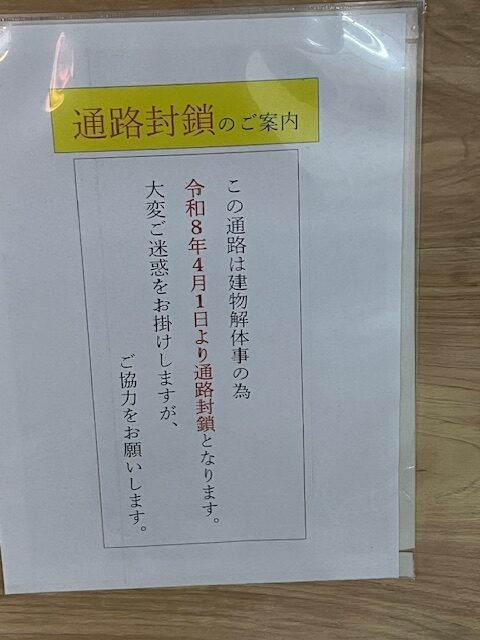 通路封鎖のご案内
この通路は建物解体事の為
令和8年4月1日より通路封鎖となります。
大変ご迷惑をお掛けしますが、
ご協力をお願いします。